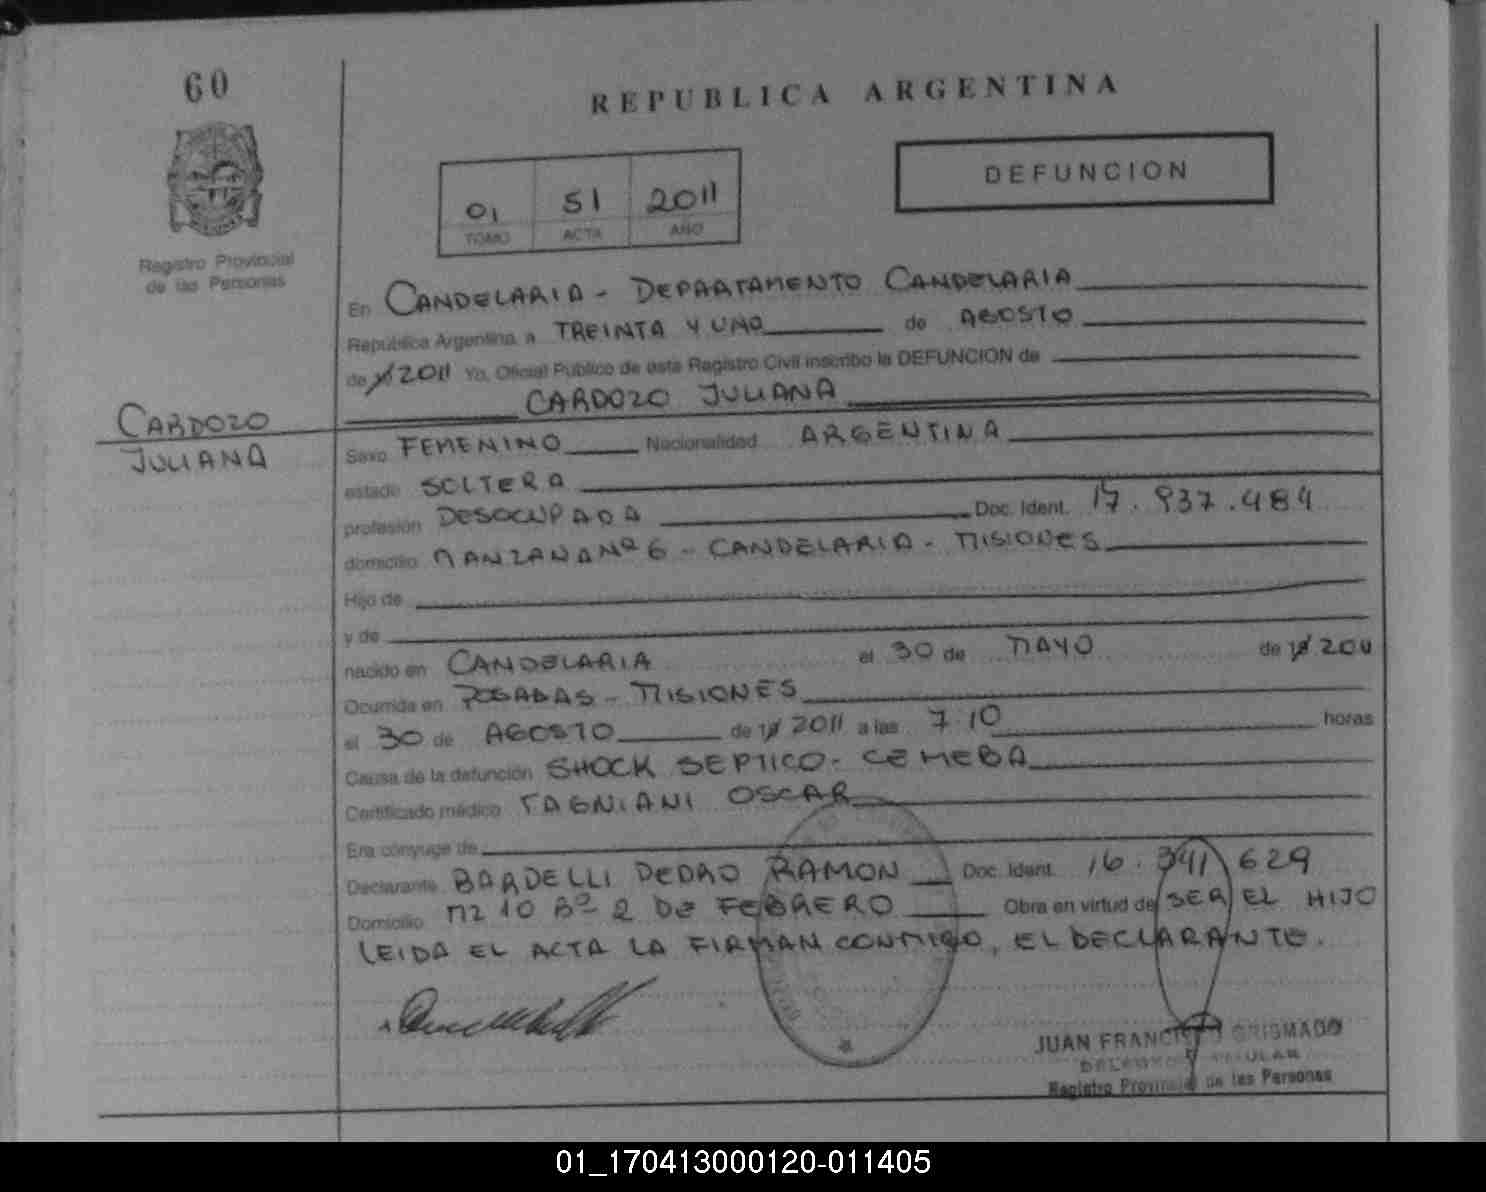 60
REPUBLICA ARGENTINA
DEFUNCION
01 51 2011
TOMO ACTA AÑO
Registro Provincial
de las Personas
En CANDELARIA - DEPARTAMENTO CANDELARIA
República Argentina, a TREINTA Y UNO de AGOSTO
de 2011 Yo, Oficial Público de este Registro Civil inscribo la DEFUNCION de
CARDOZO JULIANA
CARDOZO
JULIANA
Sexo FEMENINO Nacionalidad ARGENTINA
estado SOLTERA
profesión DESOCUPADA Doc. Ident. 17.937.484
domicilio MANZANA Nº 6 - CANDELARIA - MISIONES
Hijo de
y de
nacido en CANDELARIA el 30 de MAYO de 19 2011
Ocurrida en POSADAS - MISIONES
el 30 de AGOSTO de 19 2011 a las 7.10 horas
Causa de la defunción SHOCK SEPTICO - CEMEBA
Certificado médico TAGNIANI OSCAR
Era cónyuge de
Declarante BARDELLI PEDRO RAMON Doc. Ident. 16.341.629
Domicilio MZ 10 Bº 2 DE FEBRERO Obra en virtud de SER EL HIJO
LEIDA EL ACTA LA FIRMAN CONMIGO, EL DECLARANTE.
JUAN FRANCISCO GRISMADO
DELEGADO TITULAR
Registro Provincial de las Personas
01_170413000120-011405